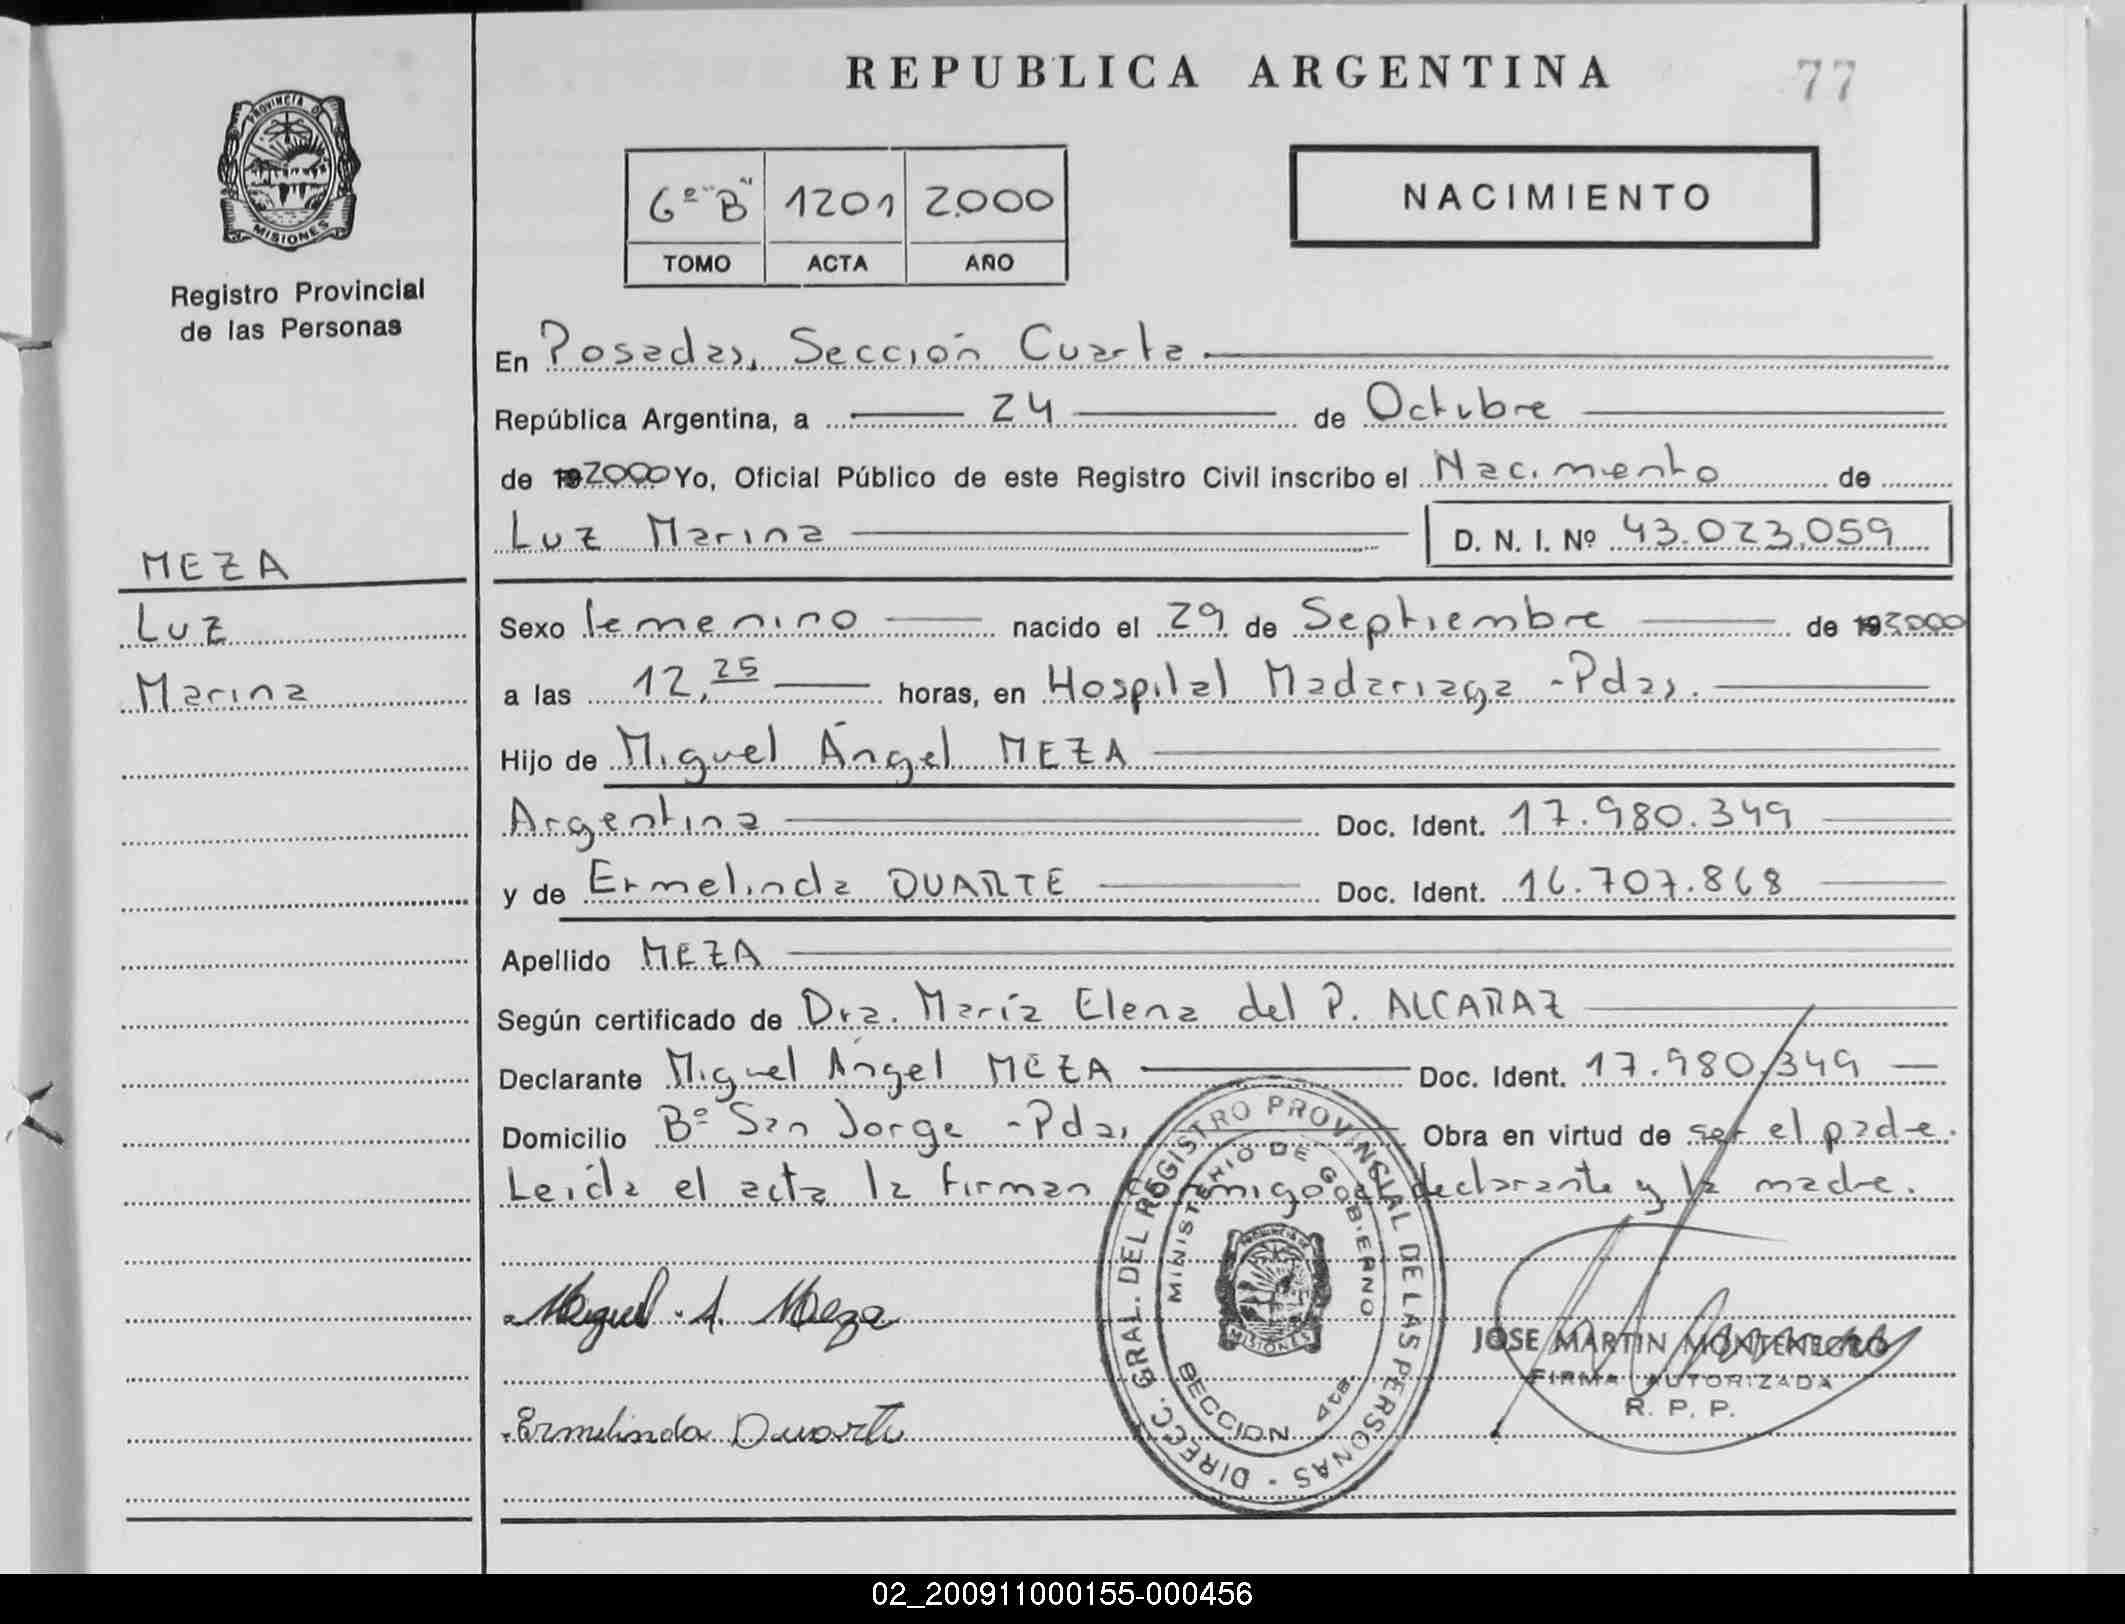 REPUBLICA ARGENTINA
77
PROVINCIA DE
MISIONES
Registro Provincial
de las Personas
6º "B" 1201 2.000
TOMO ACTA AÑO
NACIMIENTO
En Posadas, Sección Cuarta
República Argentina, a 24 de Octubre
de 192000 Yo, Oficial Público de este Registro Civil inscribo el Nacimiento de
Luz Marina D. N. I. Nº 43.023.059
MEZA
Luz
Marina
Sexo femenino nacido el 29 de Septiembre de 192000
a las 12,25 horas, en Hospital Madariaga - Pdas.
Hijo de Miguel Ángel MEZA
Argentina Doc. Ident. 17.980.349
y de Ermelinda DUARTE Doc. Ident. 16.707.868
Apellido MEZA
Según certificado de Dra. María Elena del P. ALCARAZ
Declarante Miguel Ángel MEZA Doc. Ident. 17.980.349
Domicilio Bº San Jorge - Pdas. Obra en virtud de ser el padre.
Leída el acta la firman conmigo el declarante y la madre.
Miguel A. Meza
Ermelinda Duarte
DIRECC. GRAL. DEL REGISTRO PROVINCIAL DE LAS PERSONAS -
MINISTERIO DE GOBIERNO
MISIONES
SECCION 4ta.
JOSE MARTIN MONTENEGRO
FIRMA AUTORIZADA
R. P. P.
02_200911000155-000456